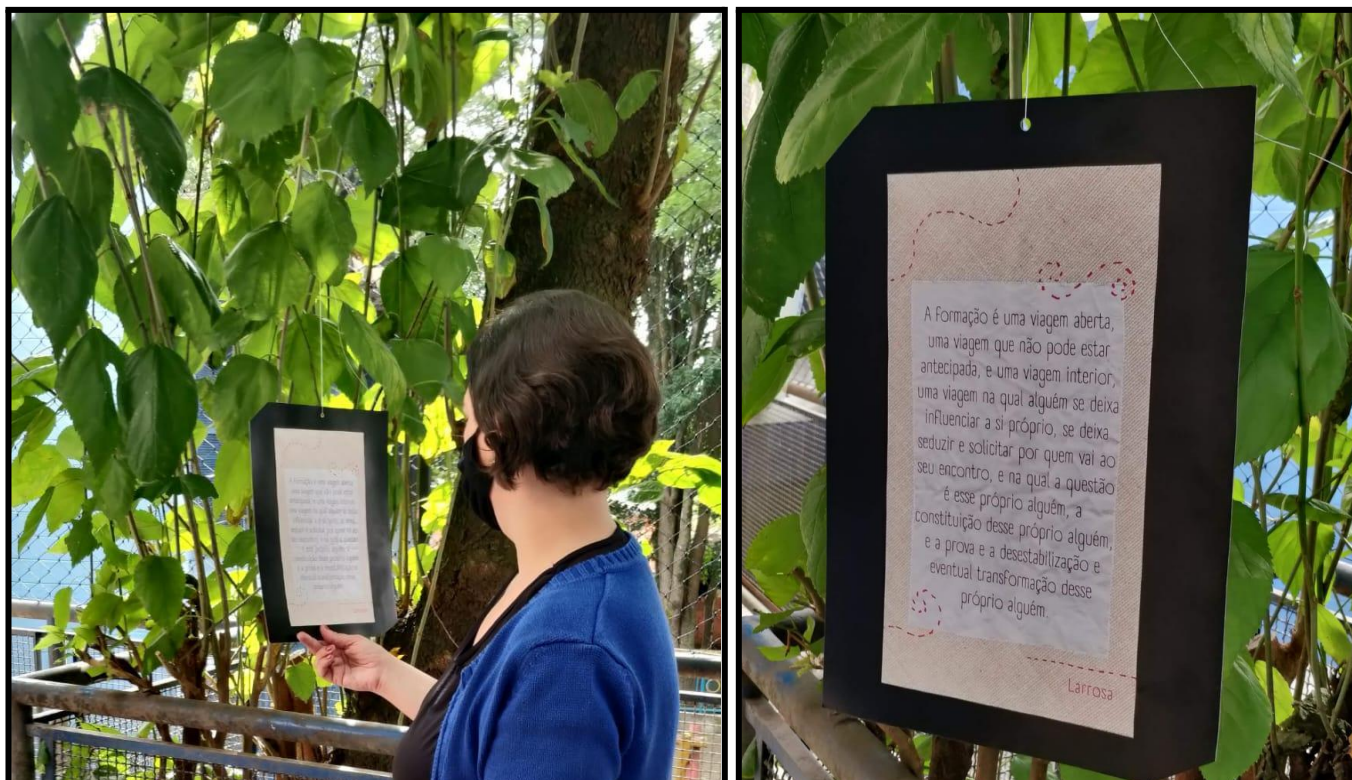 A Formação é uma viagem aberta,
uma viagem que não pode estar
antecipada, e uma viagem interior,
uma viagem na qual alguém se deixa
influenciar a si próprio, se deixa
seduzir e solicitar por quem vai ao
seu encontro, e na qual a questão
é esse próprio alguém, a
constituição desse próprio alguém,
e a prova e a desestabilização e
eventual transformação desse
próprio alguém.
Larrosa